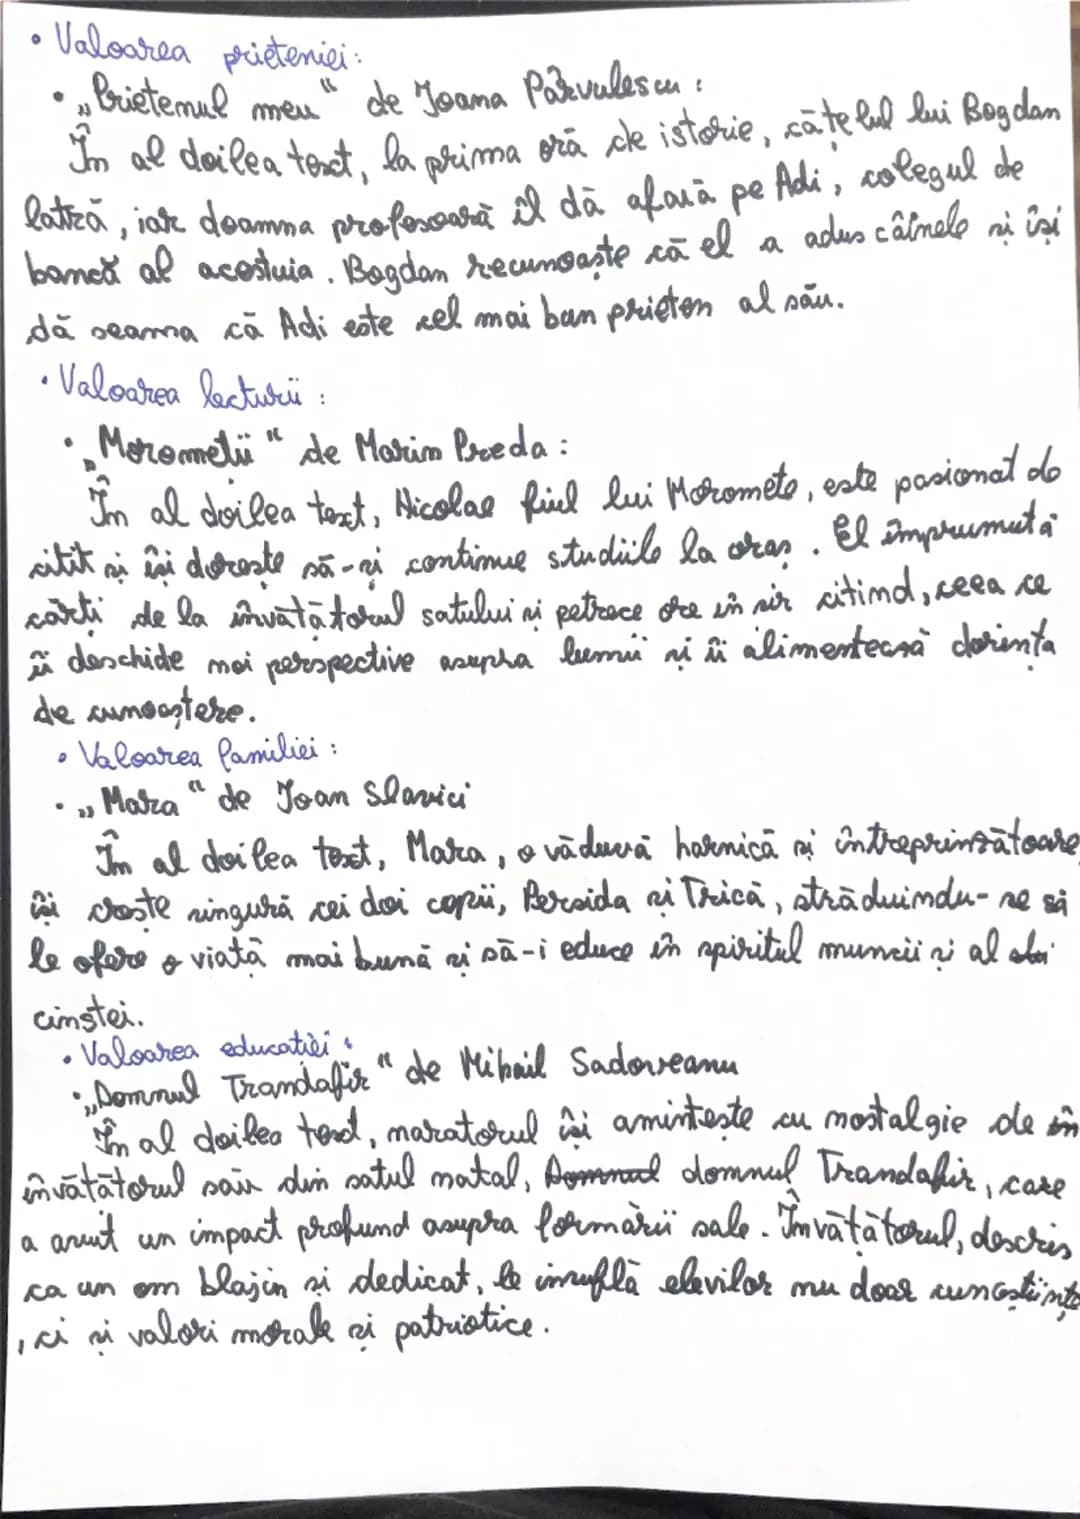 • Valoarea prieteniei:
• „Prietenul meu" de Ioana Pârvulescu :
În al doilea text, la prima oră de istorie, cățelul lui Bogdan
latră, iar doamna profesoară îl dă afară pe Adi, colegul de
bancă al acestuia. Bogdan recunoaște că el a adus câinele și își
dă seama că Adi este cel mai bun prieten al său.
• Valoarea lecturii :
• „Moromeții" de Marin Preda :
În al doilea text, Nicolae fiul lui Moromete, este pasionat de
citit și își dorește să-și continue studiile la oraș. El împrumută
cărți de la învățătorul satului și petrece ore în șir citind, ceea ce
îi deschide noi perspective asupra lumii și îi alimentează dorința
de cunoaștere.
• Valoarea familiei :
• „Mara" de Ioan Slavici
În al doilea text, Mara, o văduvă harnică și întreprinzătoare,
își crește singură cei doi copii, Persida și Trică, străduindu-se să
le ofere o viață mai bună și să-i educe în spiritul muncii și al
cinstei.
• Valoarea educației :
• „Domnul Trandafir" de Mihail Sadoveanu
În al doilea text, naratorul își amintește cu nostalgie de în
învățătorul său din satul natal, Domnul domnul Trandafir, care
a avut un impact profund asupra formării sale. Învățătorul, descris
ca un om blajin și dedicat, le insuflă elevilor nu doar cunoștiințe
, ci și valori morale și patriotice.